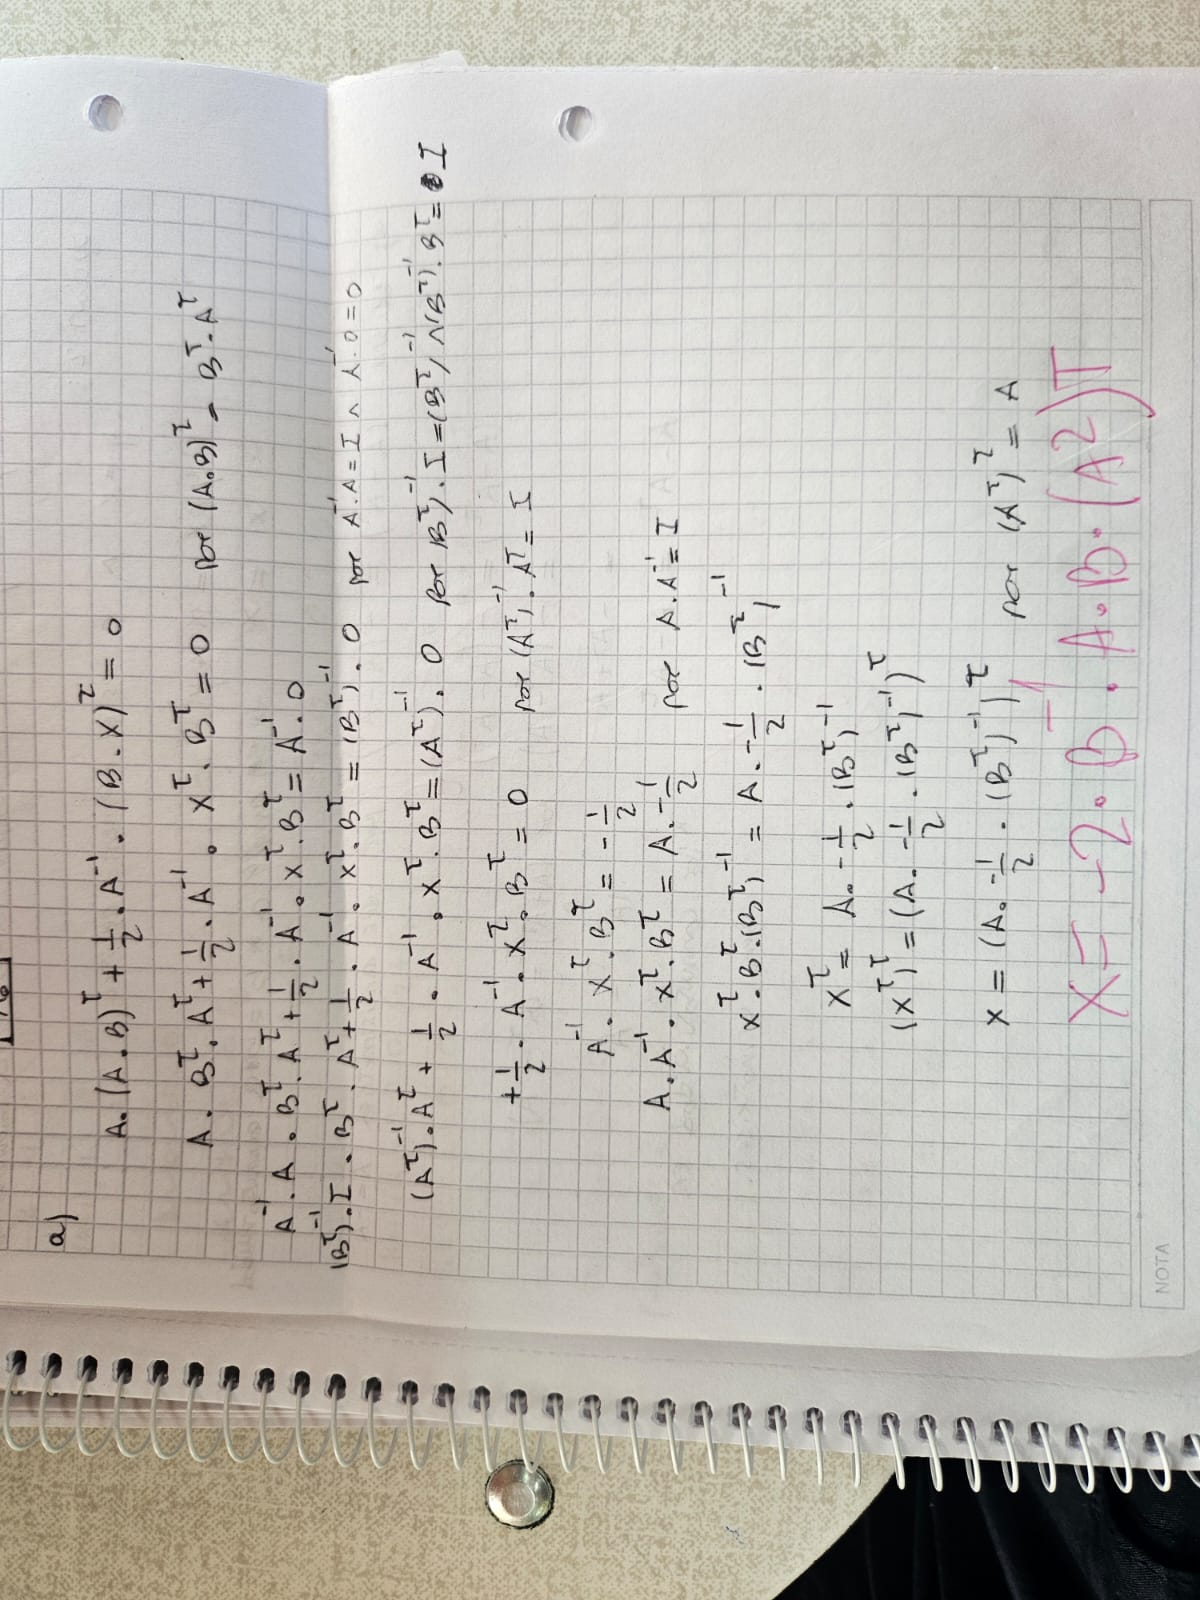 16
a)
A . (A . B)^T + 1/2 . A^-1 . (B . X)^T = 0
A . B^T . A^T + 1/2 . A^-1 . X^T . B^T = 0 por (A.B)^T = B^T . A^T
A^-1 . A . B^T . A^T + 1/2 . A^-1 . X^T . B^T = A^-1 . 0
(B^T)^-1 . I . B^T . A^T + 1/2 . A^-1 . X^T . B^T = (B^T)^-1 . 0 por A^-1 . A = I ∧ A^-1 . 0 = 0
(A^T)^-1 . A^T + 1/2 . A^-1 . X^T . B^T = (A^T)^-1 . 0 por (B^T)^-1 . I = (B^T)^-1 ∧ (B^T)^-1 . B^T = I
+ 1/2 . A^-1 . X^T . B^T = 0 por (A^T)^-1 . A^T = I
A^-1 . X^T . B^T = - 1/2
A . A^-1 . X^T . B^T = A . - 1/2 por A . A^-1 = I
X^T . B^T . (B^T)^-1 = A . - 1/2 . (B^T)^-1
X^T = A . - 1/2 . (B^T)^-1
(X^T)^T = (A . - 1/2 . (B^T)^-1)^T
X = (A . - 1/2 . (B^T)^-1)^T por (A^T)^T = A
X = -2 . B^-1 . A . B . (A^2)^T
NOTA